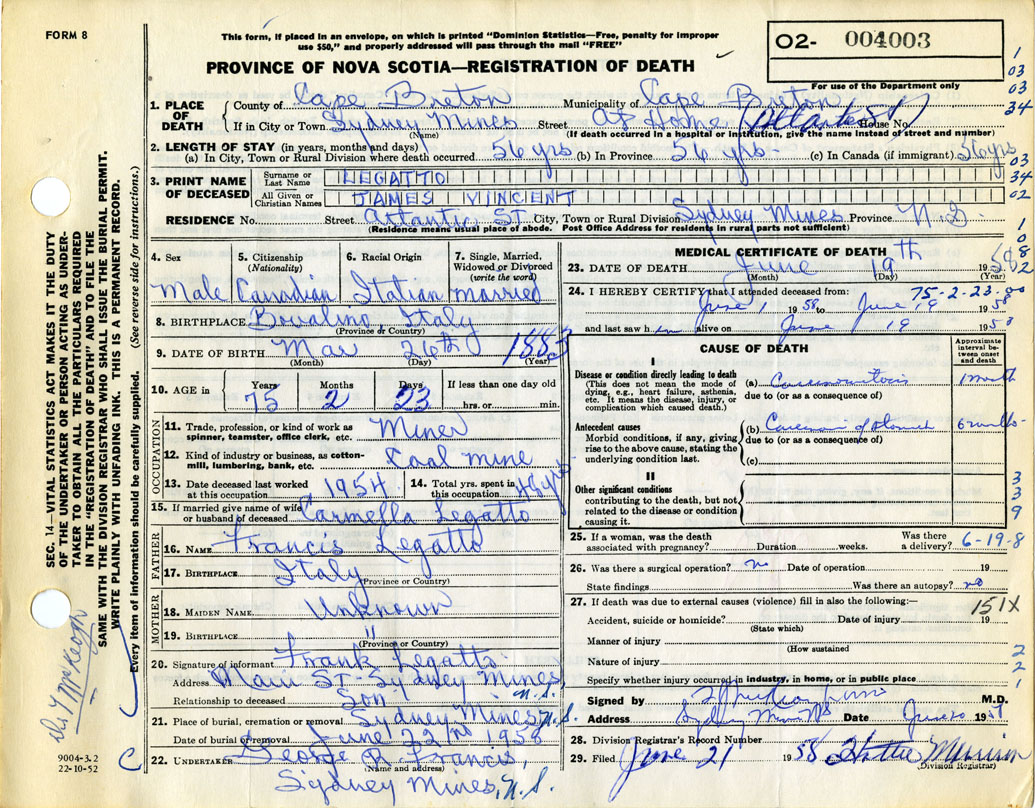 FORM 8
This form, if placed in an envelope, on which is printed "Dominion Statistics—Free, penalty for improper
use $50," and properly addressed will pass through the mail "FREE"
O2- 004003
PROVINCE OF NOVA SCOTIA—REGISTRATION OF DEATH
For use of the Department only
1
03
03
34
1. PLACE OF DEATH
County of Cape Breton Municipality of Cape Breton
If in City or Town Sydney Mines Street At Home (Atlantic St) House No.
(Name) (If death occurred in a hospital or institution, give the name instead of street and number)
2. LENGTH OF STAY (in years, months and days)
(a) In City, Town or Rural Division where death occurred 56 yrs (b) In Province 56 yrs. (c) In Canada (if immigrant) 56 yrs
03
34
02
3. PRINT NAME OF DECEASED
Surname or Last Name LEGATTO
All Given or Christian Names JAMES VINCENT
RESIDENCE No. Street Atlantic St City, Town or Rural Division Sydney Mines Province N.S.
(Residence means usual place of abode. Post Office Address for residents in rural parts not sufficient)
4. Sex
Male
5. Citizenship
(Nationality)
Canadian
6. Racial Origin
Italian
7. Single, Married,
Widowed or Divorced
(write the word)
married
8. BIRTHPLACE Bovalino, Italy
(Province or Country)
9. DATE OF BIRTH 26th 1883
(Month) (Day) (Year)
10. AGE in
Years Months Days If less than one day old
75 2 23 hrs. or min.
OCCUPATION
11. Trade, profession, or kind of work as
spinner, teamster, office clerk, etc. Miner
12. Kind of industry or business, as cotton-
mill, lumbering, bank, etc. Coal mine
13. Date deceased last worked
at this occupation 1954
14. Total yrs. spent in
this occupation yrs
15. If married give name of wife
or husband of deceased Carmella Legatto
FATHER
16. NAME Francis Legatto
17. BIRTHPLACE Italy
(Province or Country)
MOTHER
18. MAIDEN NAME Unknown
19. BIRTHPLACE "
(Province or Country)
20. Signature of informant Frank Legatto
Address Main St - Sydney Mines, N.S.
Relationship to deceased Son
21. Place of burial, cremation or removal Sydney Mines, N.S.
Date of burial or removal June 22nd 1958
22. UNDERTAKER George R. Francis,
(Name and address)
Sydney Mines, N.S.
MEDICAL CERTIFICATE OF DEATH
23. DATE OF DEATH June 19th 195
(Month) (Day) (Year)
24. I HEREBY CERTIFY that I attended deceased from:
75-2-23
June 1 1958 to June 19 1958
and last saw him alive on June 19 195
CAUSE OF DEATH
Approximate
interval be-
tween onset
and death
I
Disease or condition directly leading to death
(This does not mean the mode of
dying, e.g., heart failure, asthenia,
etc. It means the disease, injury, or
complication which caused death.)
(a) Carcinomatosis 1 month
due to (or as a consequence of)
Antecedent causes
Morbid conditions, if any, giving
rise to the above cause, stating the
underlying condition last.
(b) Carcinoma of stomach 6 months
due to (or as a consequence of)
(c)
II
Other significant conditions
contributing to the death, but not
related to the disease or condition
causing it.
3
3
9
25. If a woman, was the death
associated with pregnancy? Duration weeks. Was there
a delivery?
6-19-8
26. Was there a surgical operation? no Date of operation 19
State findings Was there an autopsy? no
27. If death was due to external causes (violence) fill in also the following:—
151X
Accident, suicide or homicide? Date of injury 19
(State which)
Manner of injury
(How sustained
Nature of injury
Specify whether injury occurred in industry, in home, or in public place
2
2
1
Signed by M.D.
Address Sydney Mines NS Date June 20 195
28. Division Registrar's Record Number
29. Filed June 21 1958 Hattie Morrison
(Division Registrar)
SEC. 14—VITAL STATISTICS ACT MAKES IT THE DUTY
OF THE UNDERTAKER OR PERSON ACTING AS UNDER-
TAKER TO OBTAIN ALL THE PARTICULARS REQUIRED
IN THE "REGISTRATION OF DEATH" AND TO FILE THE
SAME WITH THE DIVISION REGISTRAR WHO SHALL ISSUE THE BURIAL PERMIT.
WRITE PLAINLY WITH UNFADING INK. THIS IS A PERMANENT RECORD.
Every item of information should be carefully supplied. (See reverse side for instructions.)
McKeogh
9004-3.2
22-10-52